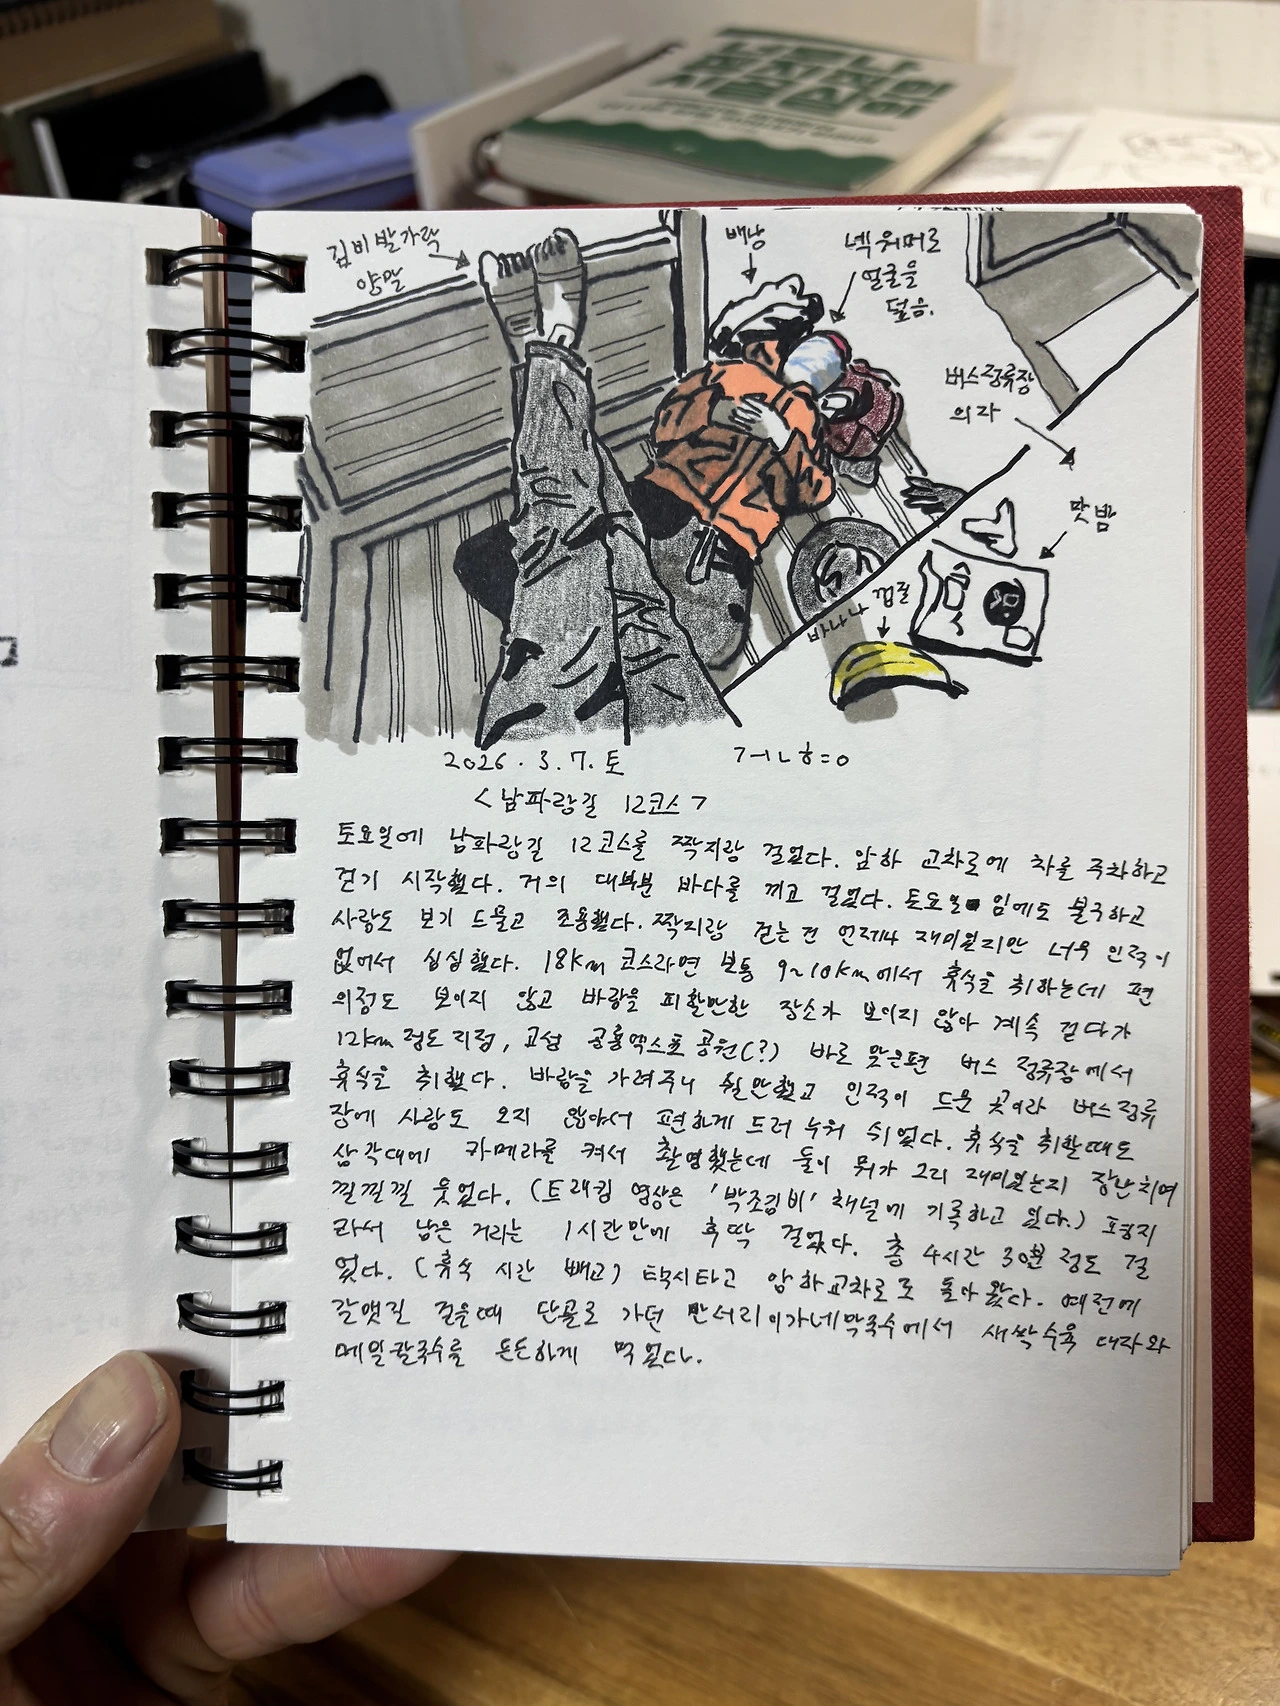 김비 발가락
양말
배낭
넥워머로
얼굴을
덮음.
버스정류장
의자
맛밤
바나나 껍질
2026. 3. 7. 토
<남파랑길 12코스>
토요일에 남파랑길 12코스를 짝지랑 걸었다. 암하 교차로에 차를 주차하고
걷기 시작했다. 거의 대부분 바다를 끼고 걸었다. 토요일 임에도 불구하고
사람도 보기 드물고 조용했다. 짝지랑 걷는 건 언제나 재미있지만 너무 인적이
없어서 심심했다. 18km 코스라면 보통 9~10km에서 휴식을 취하는데 편
의점도 보이지 않고 바람을 피할만한 장소가 보이지 않아 계속 걷다가
12km 정도 지점, 고성 공룡엑스포공원(?) 바로 맞은편 버스 정류장에서
휴식을 취했다. 바람을 가려주니 훨 안했고 인적이 드문 곳이라 버스정류
장에 사람도 오지 않아서 편하게 드러 누워 쉬었다. 휴식을 취할때도
삼각대에 카메라를 켜서 촬영했는데 둘이 뭐가 그리 재미있는지 장난치며
낄낄낄 웃었다. (트래킹 영상은 '박조김비' 채널에 기록하고 있다.)
라서 남은 거리는 1시간만에 후딱 걸었다. 총 4시간 30분 정도 걸
었다. (휴식 시간 빼고) 택시타고 암하교차로로 돌아 왔다. 예전에
갈맷길 걸을때 단골로 가던 만서리이가네막국수에서 새싹수육 대자와
메밀칼국수를 든든하게 먹었다.